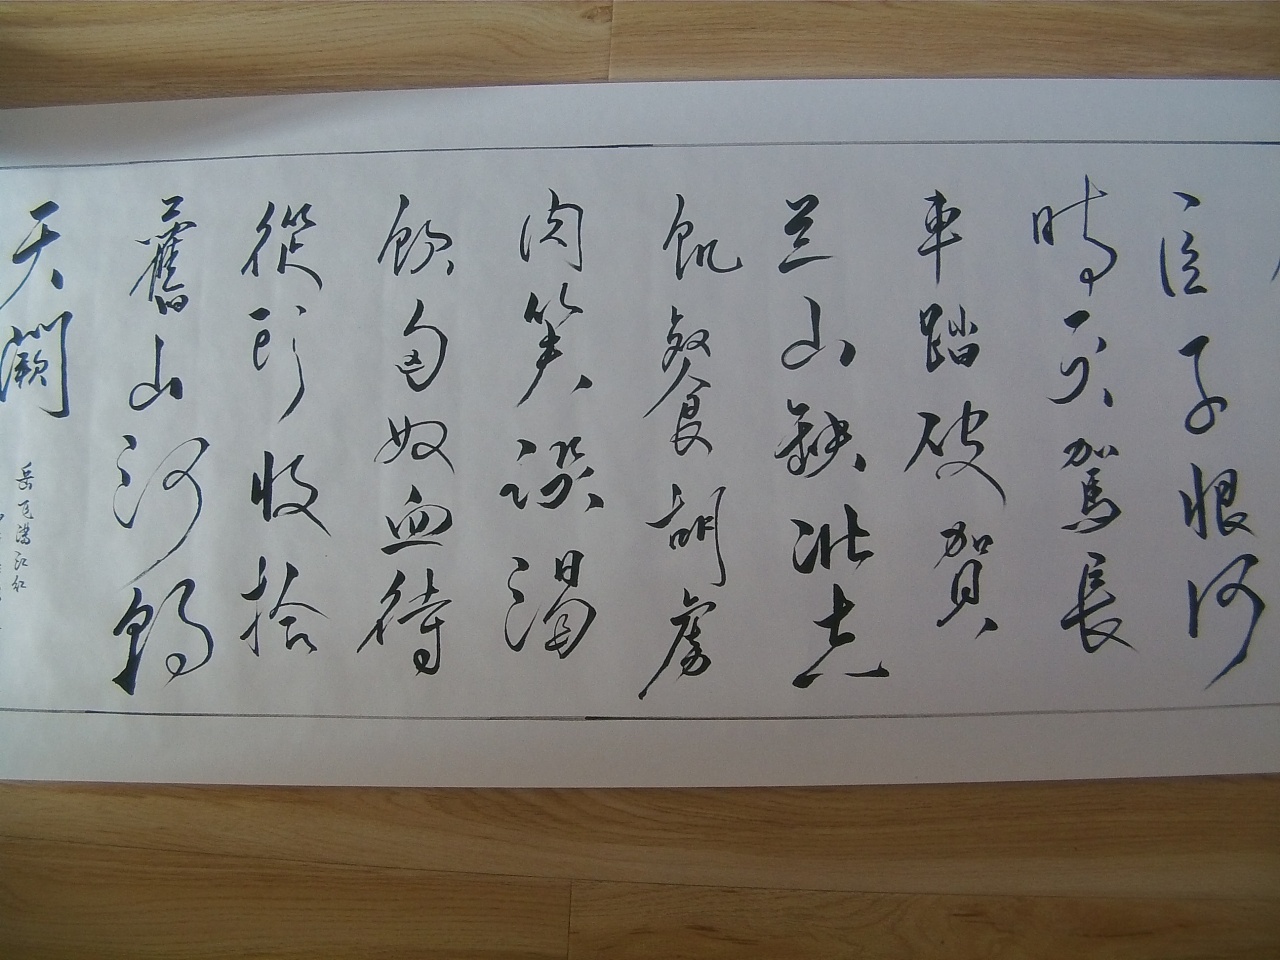 臣子恨何
時灭駕長
車踏破賀
兰山缺壮志
飢餐胡虜
肉笑談渴
飲匈奴血待
從頭收拾
舊山河朝
天闕
岳飞滿江红